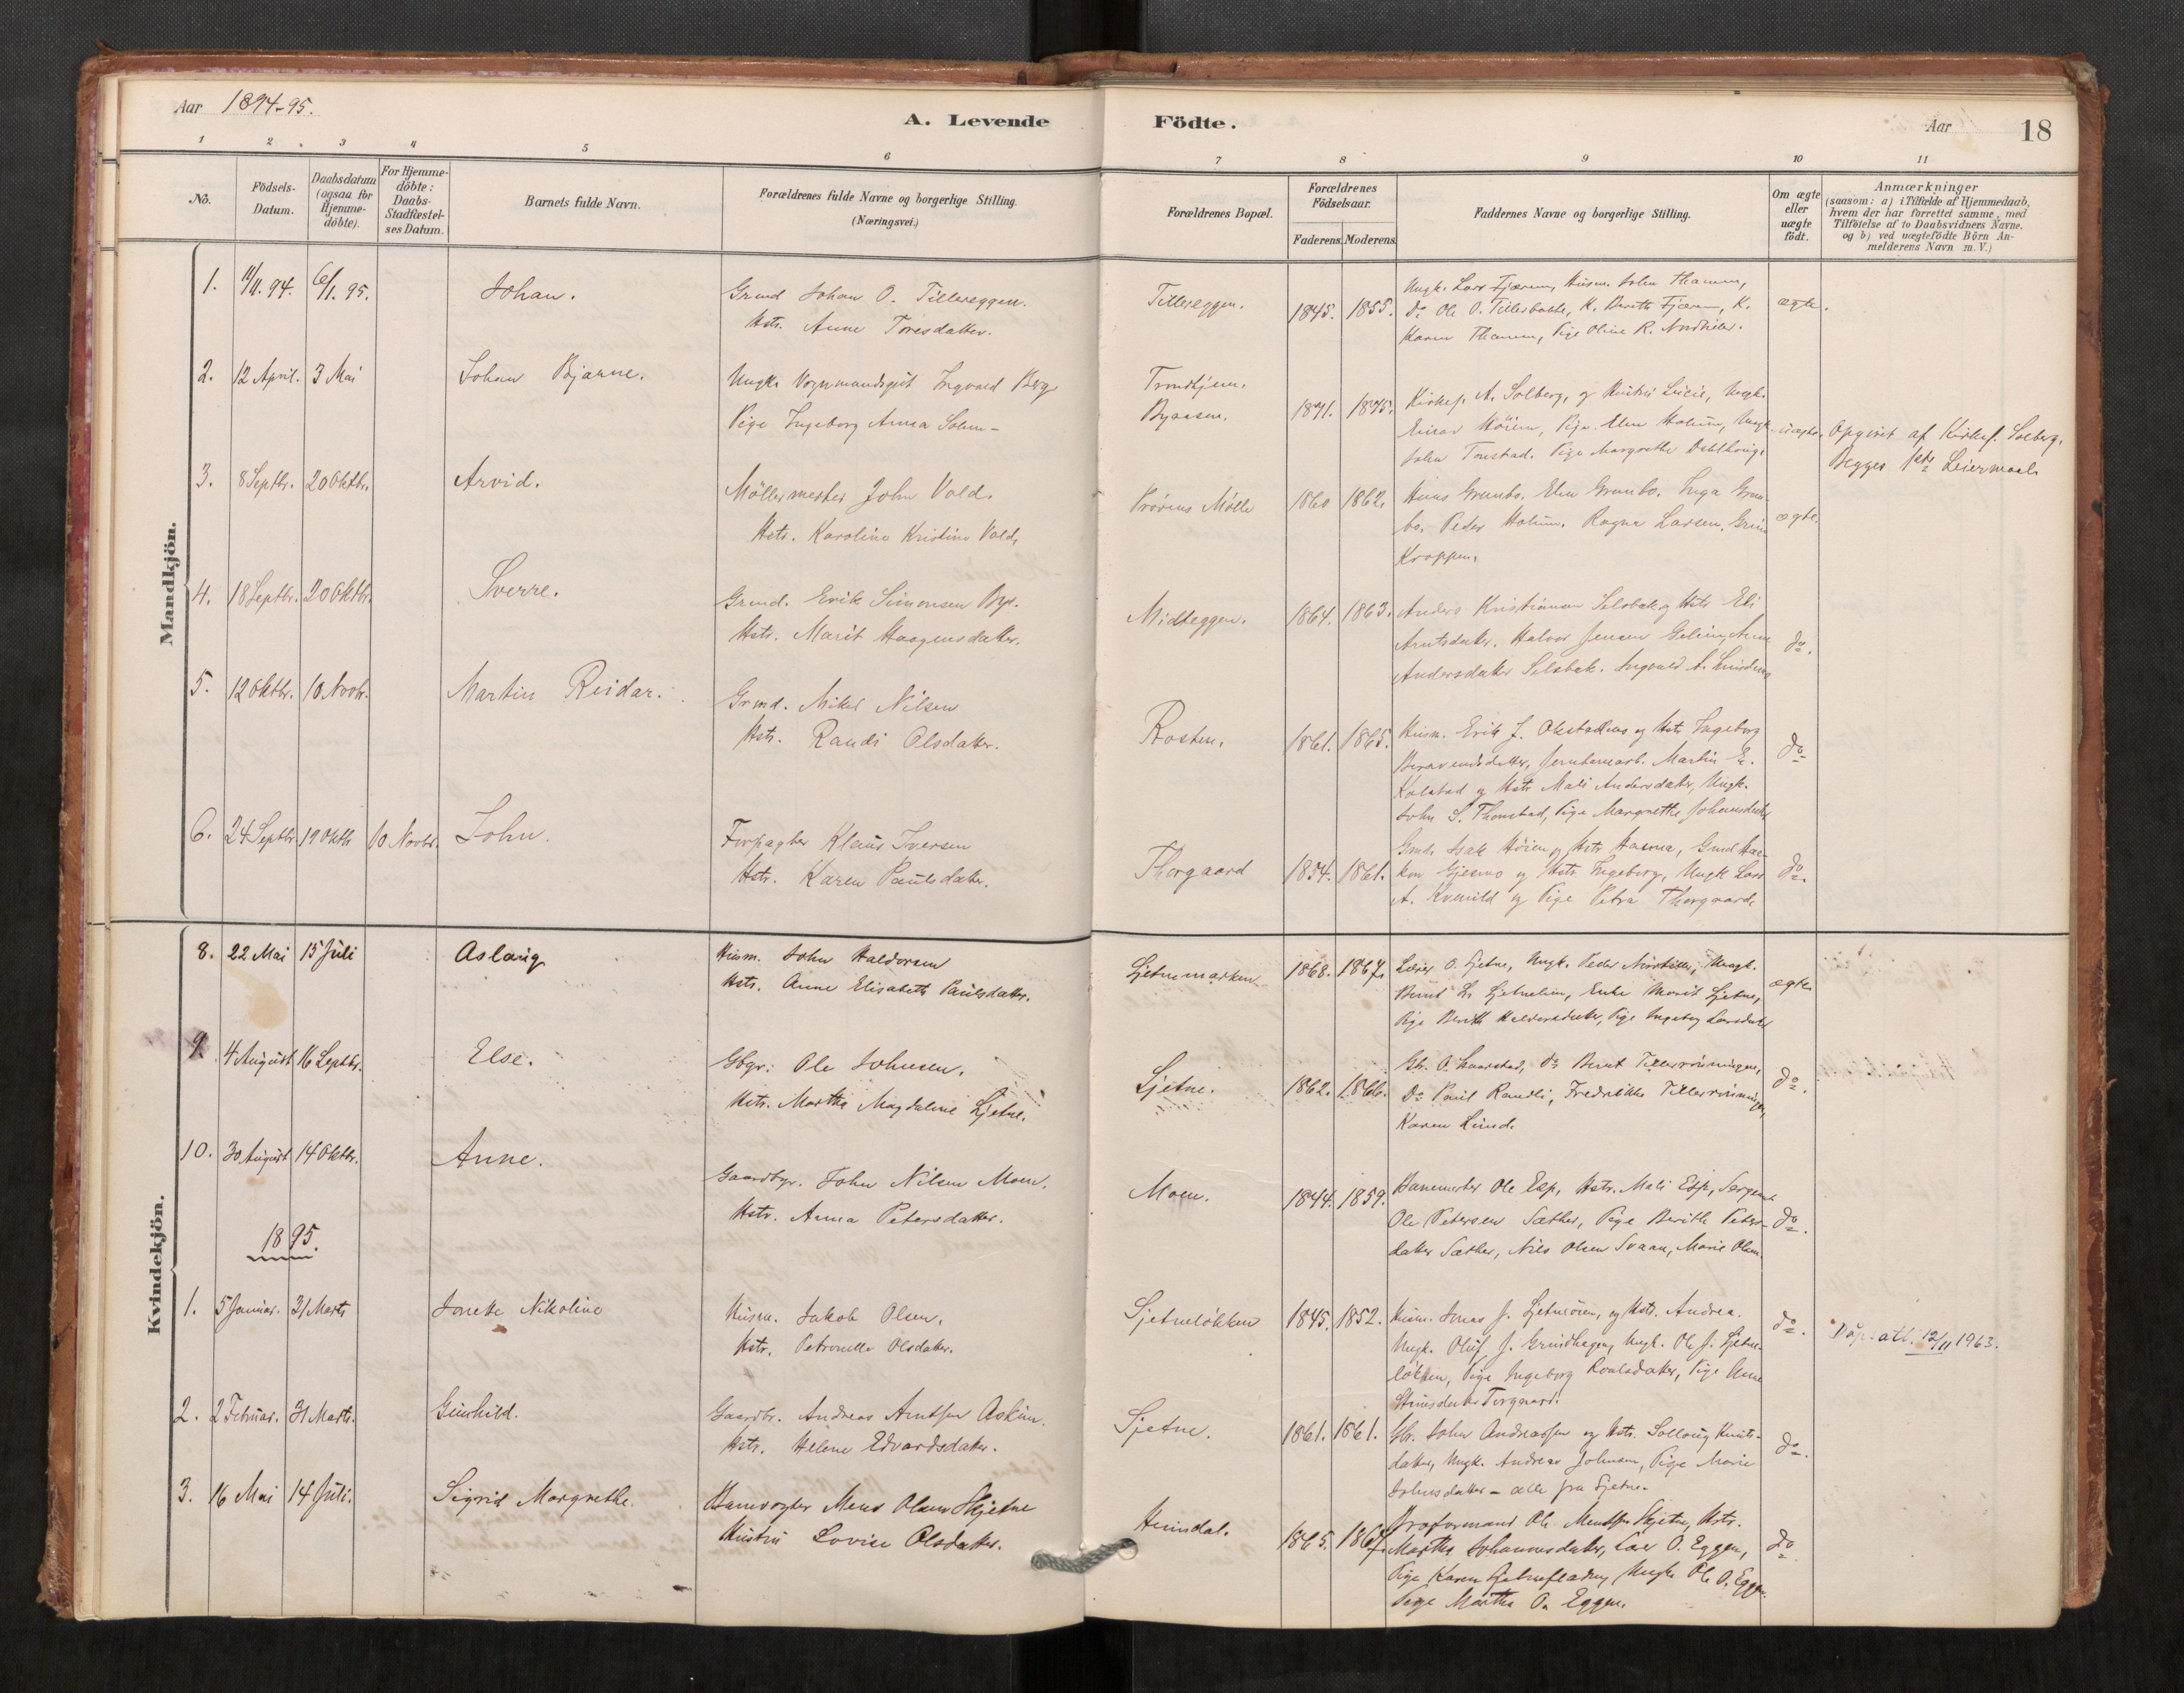 Aar 1894-95.
A. Levende Födte.
Aar 18
1 2 3 4 5 6 7 8 9 10 11
No.
Födsels-Datum.
Daabsdatum (ogsaa för Hjemme-döbte).
For Hjemme-döbte: Daabs-Stadfæstel-ses Datum.
Barnets fulde Navn.
Forældrenes fulde Navne og borgerlige Stilling.
(Næringsvei.)
Forældrenes Bopæl.
Forældrenes Födselsaar.
Faderens. Moderens.
Faddernes Navne og borgerlige Stilling.
Om ægte eller uægte födt.
Anmærkninger
(saasom: a) i Tilfælde af Hjemmedaab,
hvem der har forrettet samme, med
Tilföielse af to Daabsvidners Navne.
og b) ved uægtefödte Börn An-
melderens Navn m.V.)
Mandkjön.
1. 11/11. 94. 6/1. 95. Johan.
Grmd Johan O. Tillereggen.
Hstr. Anne Toresdatter.
Tillereggen. 1845. 1855.
Ungk. Lars Fjærem, Husm. John Thamem,
do Ole O. Tillerbakke, K. Berith Fjærem, K.
Karen Thamem, Pige Oline R.
ægte.
2. 12 April. 3 Mai Johan Bjarne.
Ungk. Vognmandsgut Ingvald Berg
Pige Ingeborg Anna Solem-
Trondhjem.
Byaasen. 1871. 1875.
Kirkes. A. Solberg, og Hustru Lucie, Ungk.
Einar Höiem, Pige Elen Holum, Ungk
John Tonstad. Pige Margrethe
uægte. Opgivet af Kirkes. Solberg.
Begges 1ste Leiermaal.
3. 8 Septbr. 20 Oktbr. Arvid.
Möllermester John Vold.
Hstr. Karoline Kristine Vold.
Prövens Mölle 1860 1862.
Hans Granbo. Elen Granbo. Inga Gran-
bo. Peder Holum. Ragna Larsen.
Kroppen.
ægte.
4. 18 Septbr. 20 Oktbr. Sverre.
Grmd. Erik Simonsen Bye.
Hstr. Marit Haagensdatter.
Midteggen. 1864. 1863.
Anders Kristiansen Selsbak og Hstr Eli
Arntsdatter. Halvor Jensen
Andersdatter Selsbak. Ingvald A.
do.
5. 12 Oktbr. 10 Novb. Martin Reidar.
Grmd. Mikel Nilsen
Hstr. Randi Olsdatter.
Rosten. 1861. 1865.
Husm. Erik J. og Hstr. Ingeborg
Jernbanearb. Martin E.
Kolstad og Hstr Mali Andersdatter, Ungk.
John S. Thonstad, Pige Margrethe Johansdatter
do
6. 24 Septbr 19 Oktb 10 Novbr. John.
Forpagter Klaus Iversen
Hstr. Karen Paulsdatter.
Thorgaard 1854. 1861.
Grmd. Isak Höiem og Hstr Hanna, Grmd Haa-
kon og Hstr Ingeborg, Ungk Lars
A. Kvenild og Pige Petra Thorgaard.
do.
Kvindekjön.
8. 22 Mai 15 Juli Aslaug
Husm. John Haldorsen
Hstr. Anne Elisabeth Paulsdatter.
Sjetnemarken 1868. 1867.
Lars O. Sjetne, Ungk. Peder Ungk.
Bernt Sjetnelien, Enke Marit Sjetne,
Pige Berith Haldorsdatter, Pige Ingeborg Larsdatter
ægte.
9. 4 August 16 Septbr. Else.
Gbgr. Ole Johnsen.
Hstr. Martha Magdalene Sjetne.
Sjetne. 1862. 1866.
Gb. O. do Bernt Tillerrönningen,
Do Paul Randli, Fredrikke Tillerrönningen,
Karen Lund.
do.
10. 30 August 14 Oktbr. Anne.
Gaardbgr. John Nilsen Moen.
Hstr. Anna Petersdatter.
Moen. 1844. 1859.
Banemester Ole Esp, Hstr. Mali Esp, Sergeant
Ole Petersen Sæther, Pige Berith Peters-
datter Sæther, Nils Olsen Svaan, Marie Olsen.
do.
1895.
1. 5 Januar. 31 Marts Jonette Nikoline
Husm. Jakob Olsen.
Hstr. Petronelle Olsdatter.
Sjetneløkken 1845. 1852.
Husm. Jonas J. og Hstr. Andrea.
Ungk. Oluf J. Ungk. Ole J. Sjetne-
løkken, Pige Ingeborg Pige Anne
Torgaard.
do. Døp. att. 12/11 1963.
2. 2 Februar. 31 Marts. Gunhild.
Gaardbr. Andreas Arntsen Askim.
Hstr. Helene Edvardsdatter.
Sjetne. 1861. 1861.
Gb. John Andreassen og Hstr. Solloug Knuts-
datter, Ungk. Andreas Johnsen, Pige Marie
Johnsdatter - alle fra Sjetne.
do.
3. 16 Mai 14 Juli. Sigrid Margrethe.
Banevogter Mens Olsen Skjetne
Hustru Lovise Olsdatter.
Heimdal. 1865. 1867.
Proformand Ole Mentsen Skjetne, Hstr.
Martha Johannesdatter, Lars O. Eggen,
Pige Karen Ungk. Ole O. Eggen.
Pige Martha O. Eggen.
do